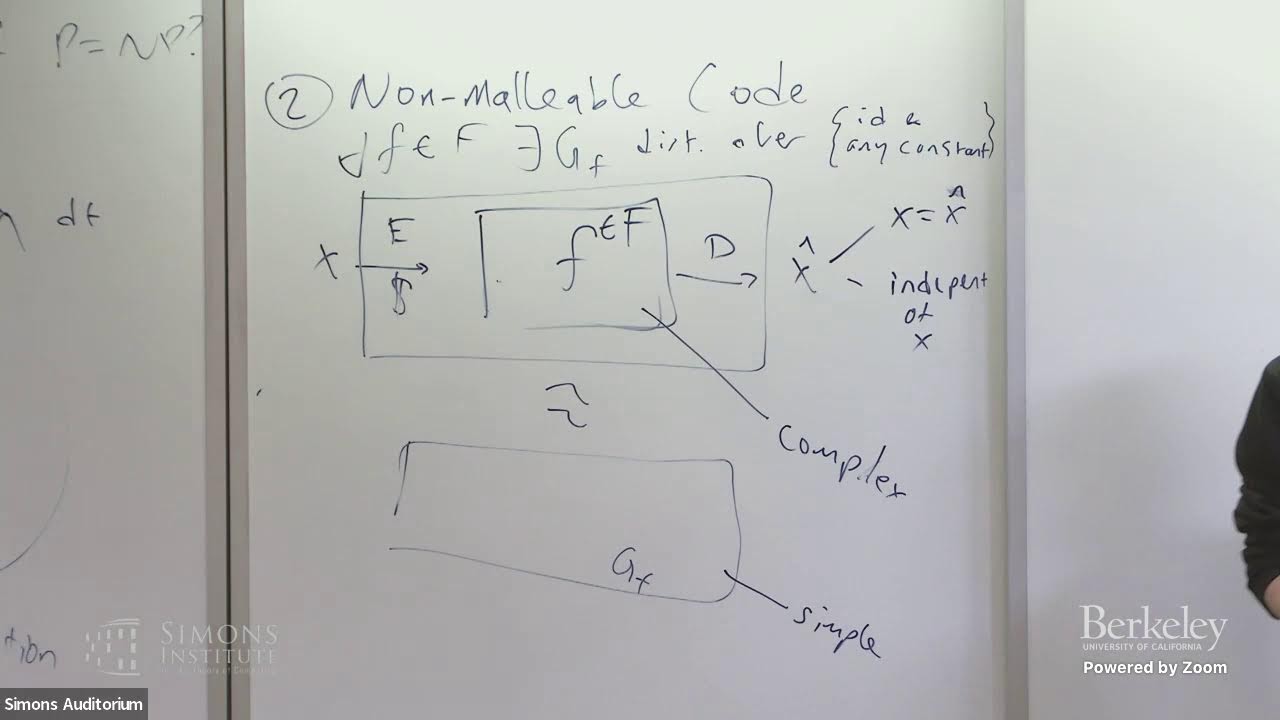 P=NP?
② Non-malleable Code
∀f∈F ∃G_f dist. over {id & any constant}
dt
E
$
x
f∈F
D
x̂
x=x̂
indepent
of
x
≈
complex
G_f
simple
tion
SIMONS
INSTITUTE
Berkeley
UNIVERSITY OF CALIFORNIA
Powered by Zoom
Simons Auditorium